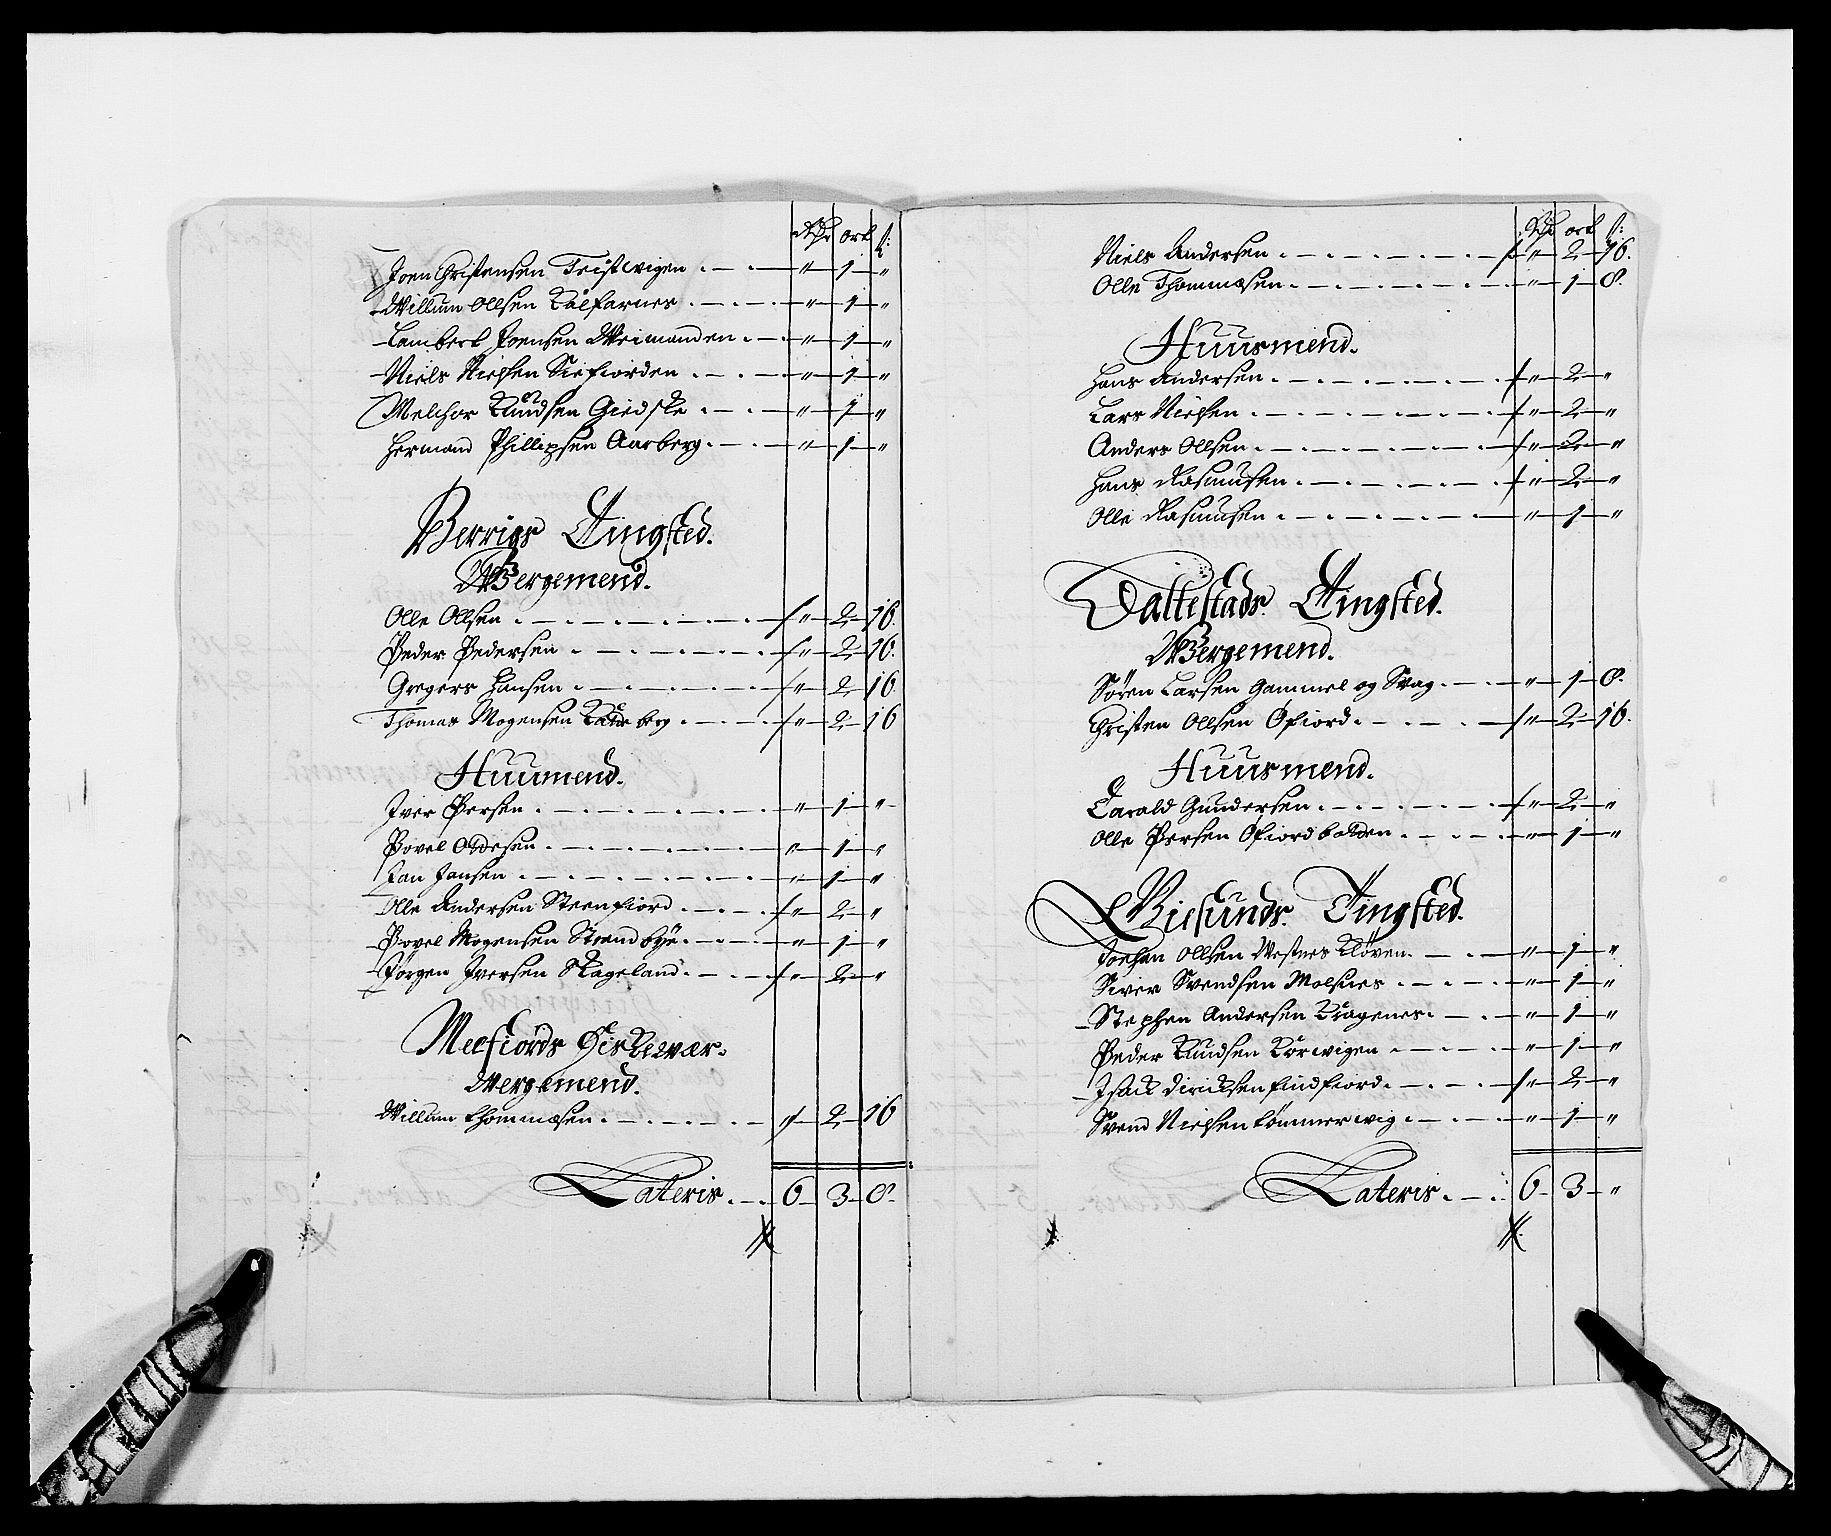 Rdr ort ß:
Joen Christensen Tristwigen . — . — " — 1 — "
Willum Ollsen Kalfarnes . — . — . — " — 1 — "
Lambert Joensen Weimanden . — . — " — 1 — "
Niels Nielsen Siefiorden . — . — . — " — 1 — "
Melchor Knudsen Giedske . — . — " — 1 — "
Hermand Phillipsen Aarberg . — . — " — 1 — "
Berrigs Tingsted.
Wergemend.
Olle Ollsen . — . — . — . — " — 2 — 16.
Peder Pedersen . — . — . — . — " — 2 — 16.
Gregers Hansen . — . — . — . — " — 2 — 16
Thomas Mogensen berg . — . — " — 2 — 16
Huumend.
Iver Persen . — . — . — . — " — 1 — "
Povel Oddesen . — . — . — . — " — 1 — "
Jan Jansen . — . — . — . — " — 1 — "
Olle Andersen Steenfiord . — . — " — 2 — "
Povel Mogensen Strandbye . — . — " — 1 — "
Jørgen Iversen Skageland . — . — " — 2 — "
Mefiords Giskevær.
Wergemend.
Willum Thommesen . — . — . — " — 2 — 16
Lateris . — . 6 — 3 — 8.
Rdr ort ß:
Niels Andersen . — . — . — . — " — 2 — 16.
Olle Thommesen . — . — . — . — " — 1 — 8.
Huusmend.
Hans Andersen . — . — . — . — " — 2 — "
Lars Nielsen . — . — . — . — " — 2 — "
Anders Ollsen . — . — . — . — " — 2 — "
Hans Rasmusen . — . — . — . — " — 2 — "
Olle Rasmusen . — . — . — . — " — 1 — "
Baltestads Tingsted.
Wergemend.
Søren Larsen Gammel og Svag . — . — " — 1 — 8.
Christen Ollsen Øfiord . — . — . — " — 2 — 16.
Huusmend.
Tarald Gundersen . — . — . — " — 2 — "
Olle Persen Øfiordbotden . — . — " — 1 — "
Giesunds Tingsted.
Johan Ollsen Westnes Kløven . — . — " — 1 — "
Siver Svendsen Molsnes . — . — . — " — 1 — "
Stephen Andersen Kragenes . — . — " — 1 — "
Peder Knudsen Korwigen . — . — " — 1 — "
Isack Diricksen Findfiord . — . — " — 2 — "
Svend Nielsen Tømmerwig . — . — " — 1 — "
Lateris . — . 6 — 3 — "